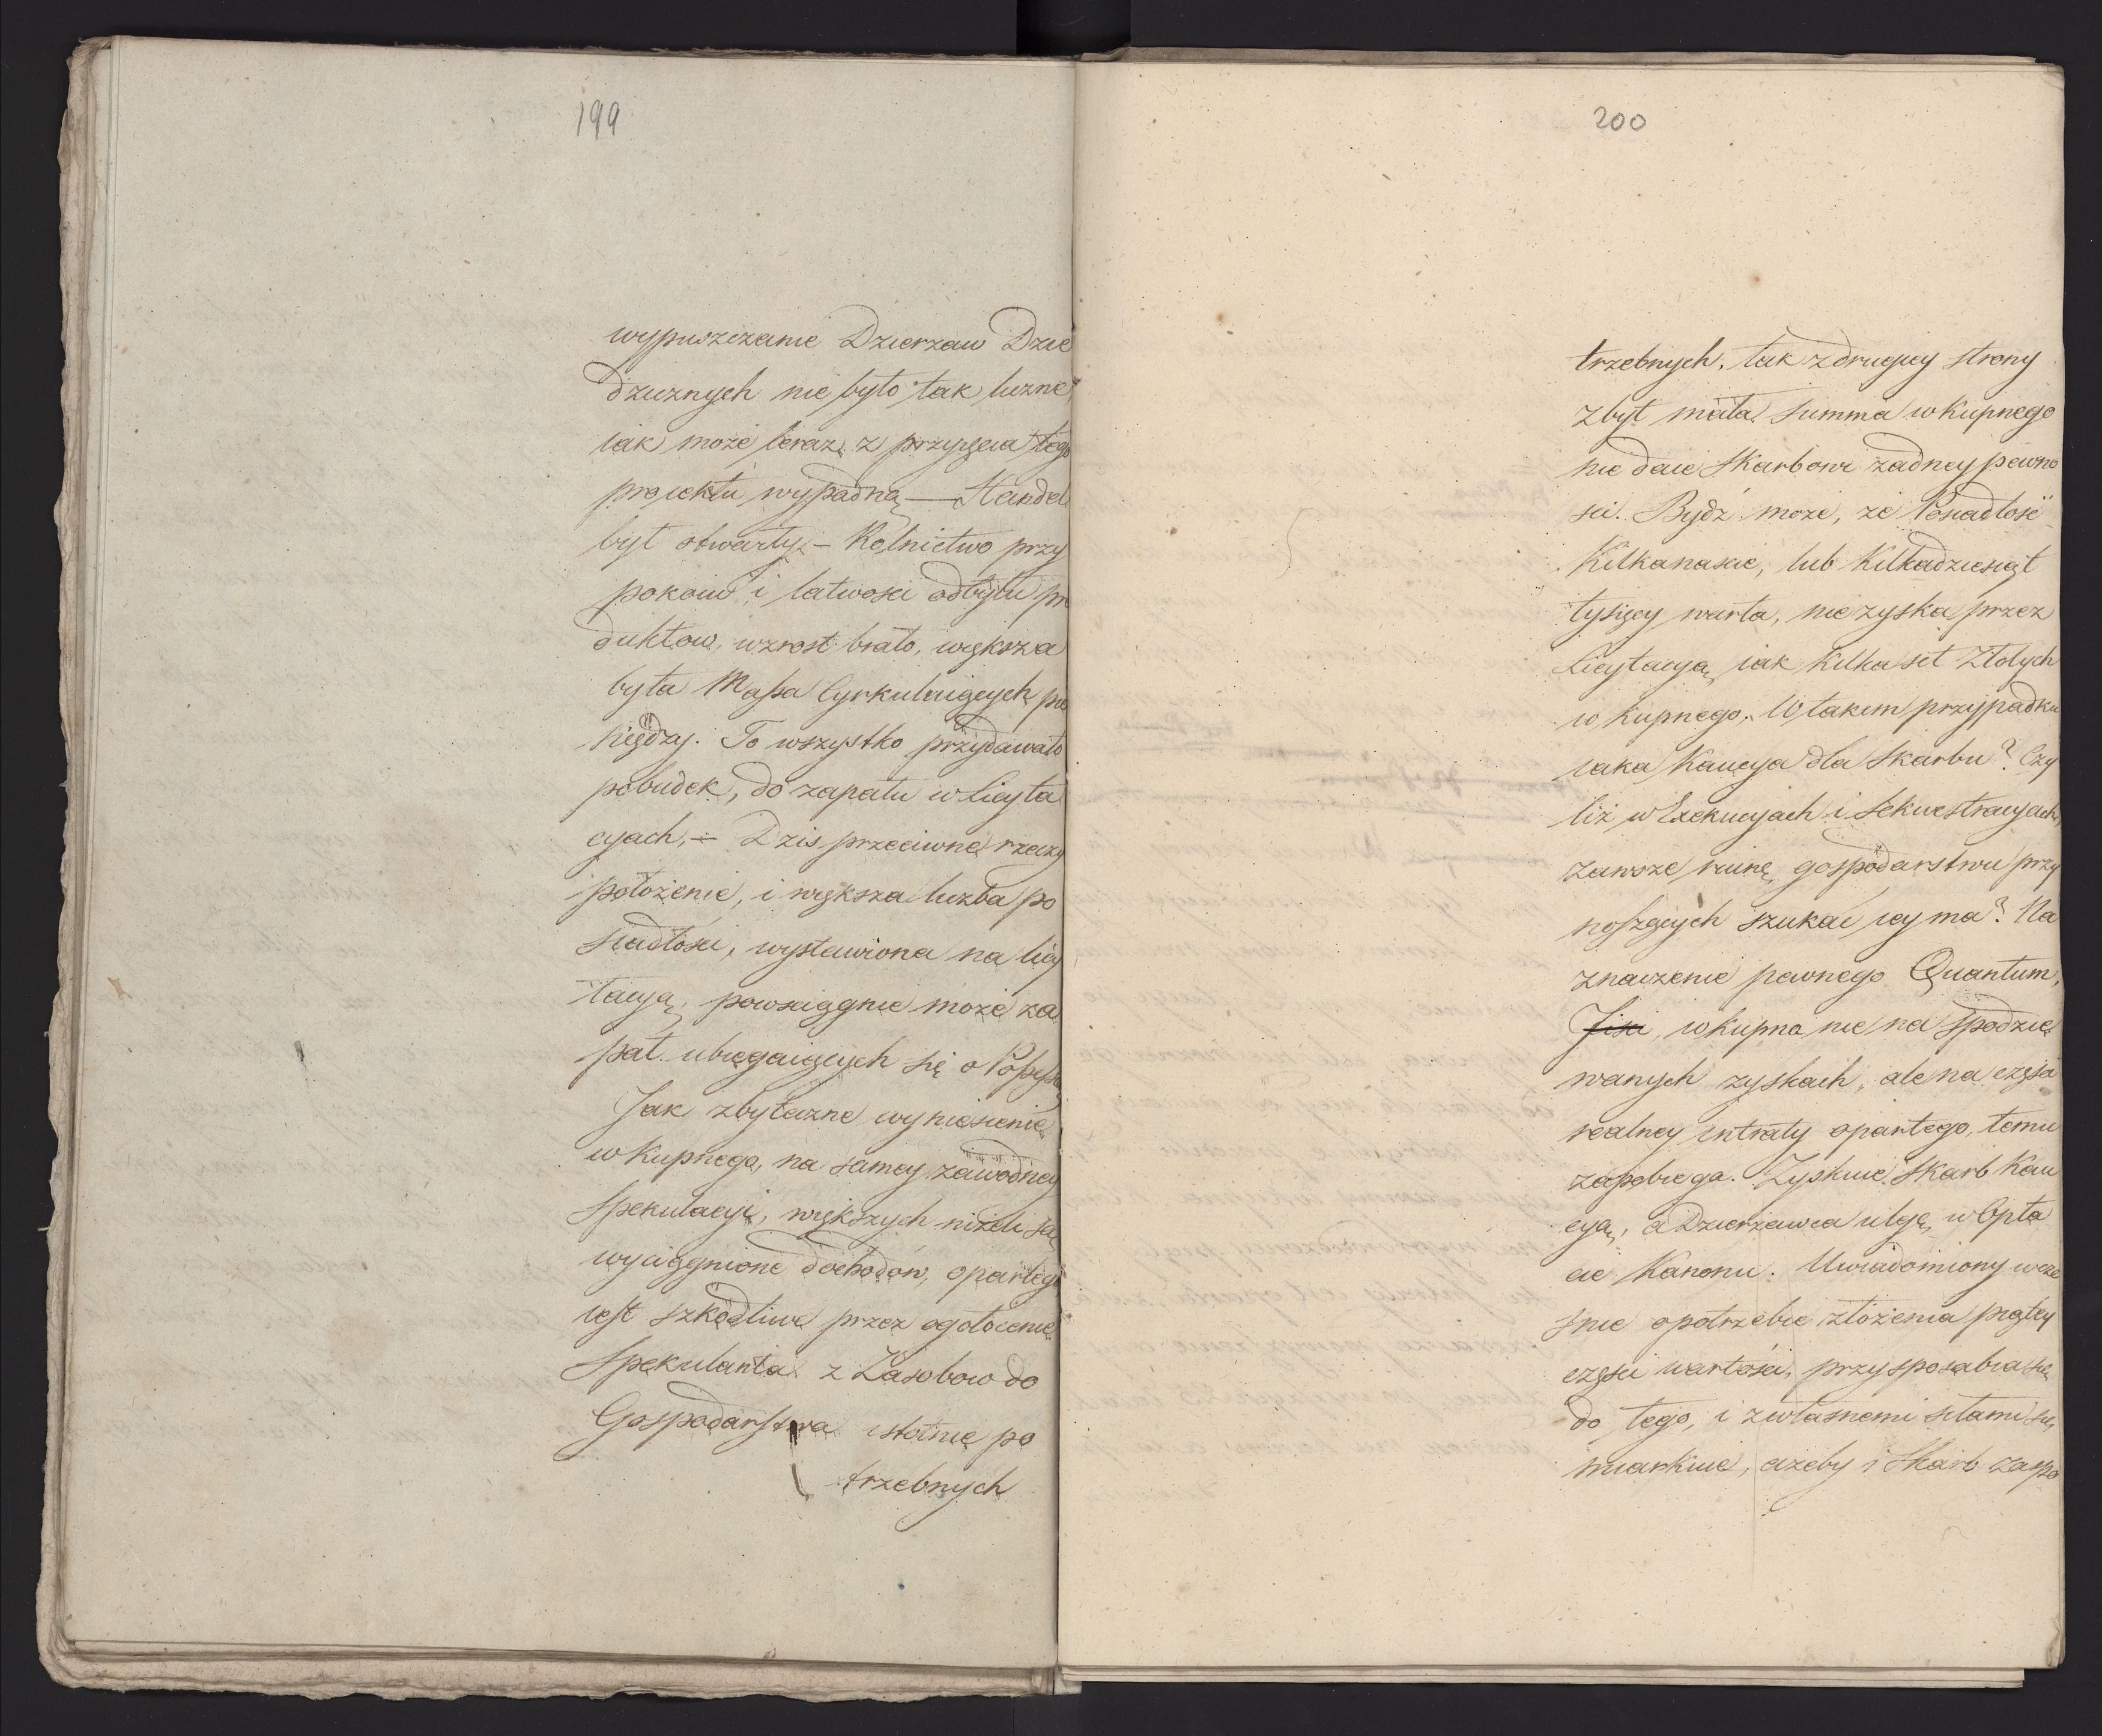 199
wypuszczanie Dzierzaw Dzie
dzicznych nie było tak liczne
iak może teraz, z przyięcia tego
proiektu wypadną — Handel
był otwarty, — Rolnictwo przy
pokoiu i łatwości odbytu pro
duktow, wzrost brało, większa
była Massa Cyrkuluiących pie
niędzy. To wszystko przydawało
pobudek, do zapału w licyta
cyach, — Dzis przeciwne rzeczy
położenie, i większa liczba po
siadłości, wystawiona na licy
tacyą, powściągnie może za
pał ubiegaiących się o Possess
Jak zbyteczne wyniesienie
wkupnego, na samey zawodney
Spekulacyi, większych niżeli są
wyciągnione dochodow, opartego
iest szkodliwe przez ogołocenie
Spekulanta z Zasobow do
Gospodarstwa istotnie po
trzebnych
200
trzebnych. tak z drugiey strony
zbyt mała summa wkupnego
nie daie Skarbowi żadney pewno
ści. Bydź może, że Posiadłość
Kilkanaście, lub Kilkadziesiąt
tysięcy warta, nie zyska przez
Licytacyą, iak kilka set Złotych
wkupnego. W takim przypadku
iaka Kaucya dla Skarbu? Czy
liż w Exekucyach i Sekwestracyach,
zawsze ruinę gospodarstwu przy
noszących szukać iey ma? Na
znaczenie pewnego Quantum,
Jisci, wkupna nie na spodzie
wanych zyskach, ale na części
realney intraty opartego, temu
zapobiega. Zyskuie Skarb Kau
cyą, a Dzierżawca ulgę w Opła
cie Kanonu. Uwiadomiony wcze
śnie o potrzebie złożenia piątey
części wartości, przysposabia się
do tego, i z własnemi siłami się
miarkuie, ażeby i Skarb zaspo